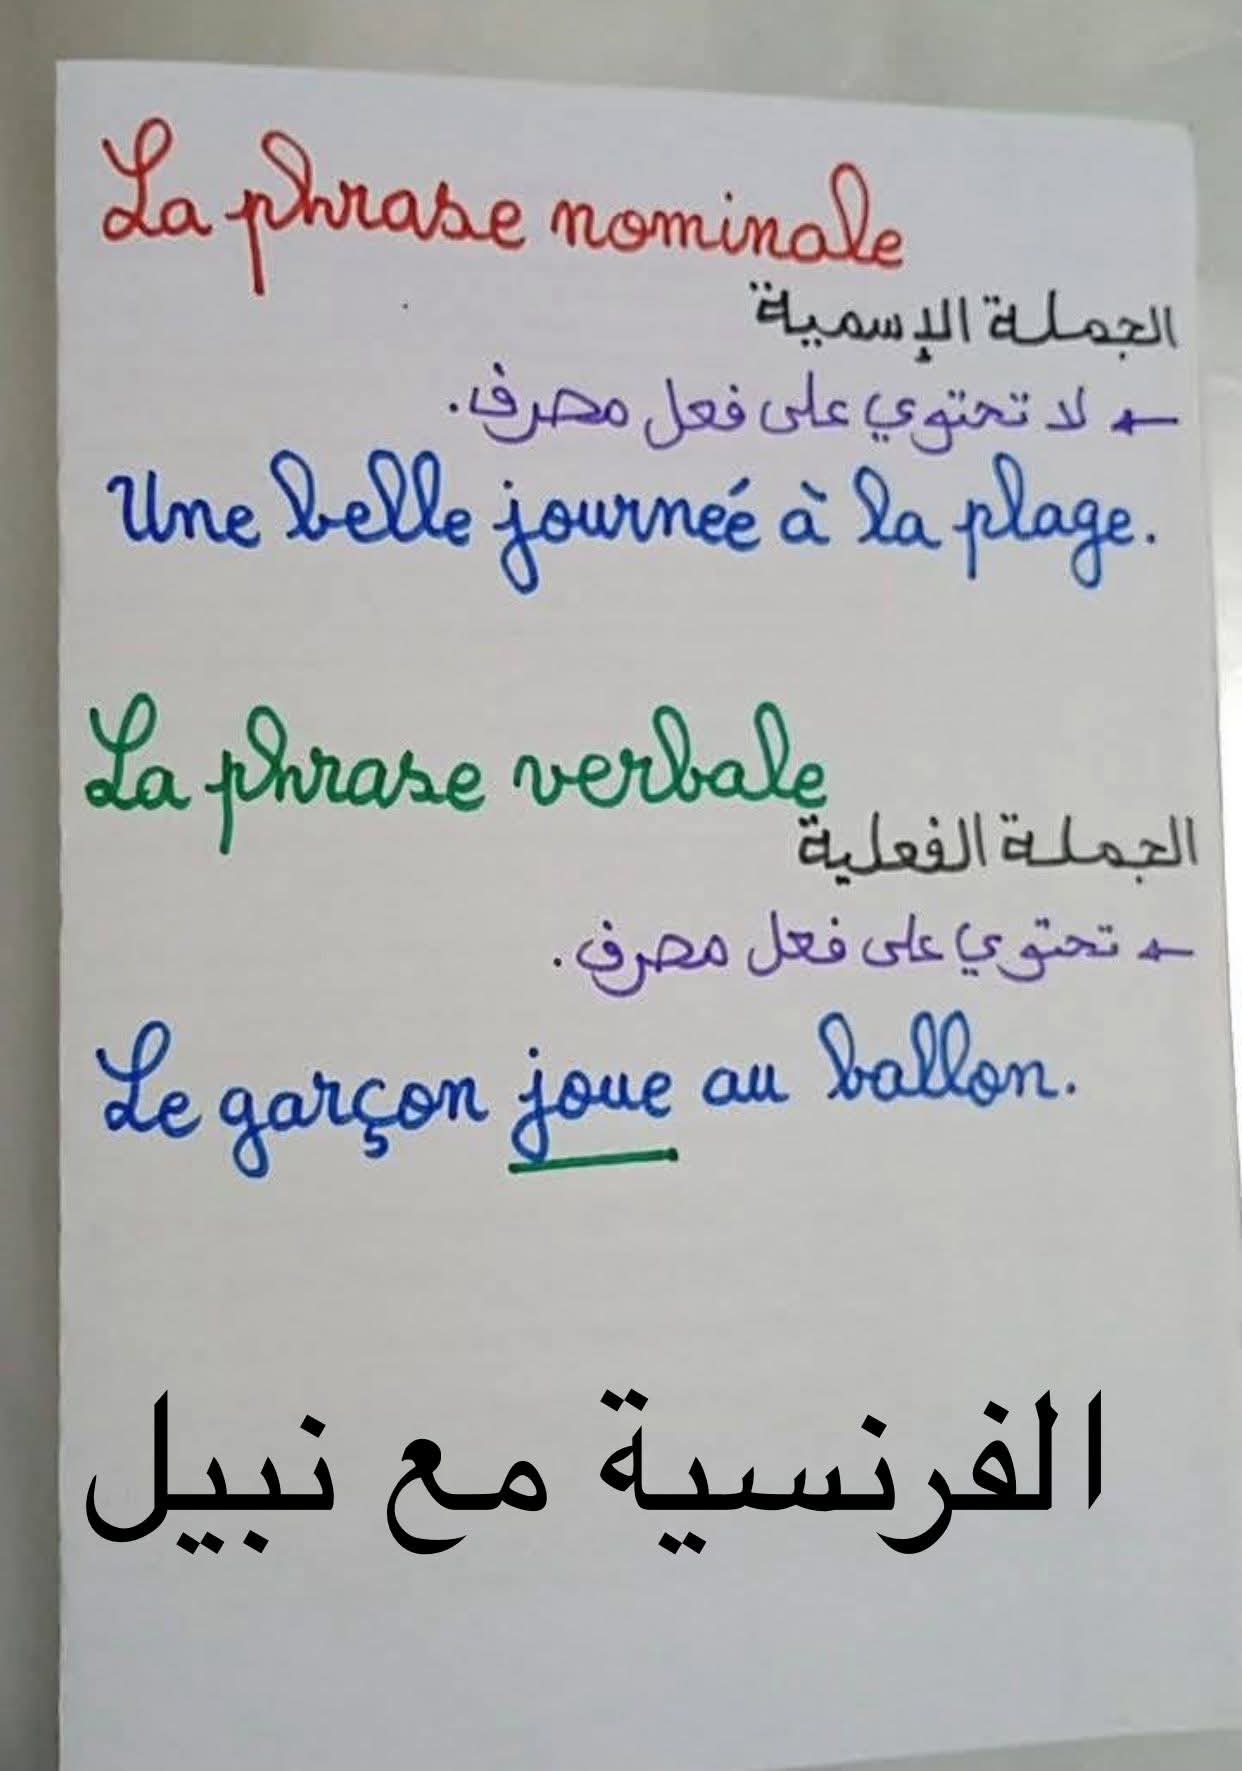 La phrase nominale
الجملة الإسمية
← لا تحتوي على فعل مصرف.
Une belle journée à la plage.
La phrase verbale
الجملة الفعلية
← تحتوي على فعل مصرف.
Le garçon joue au ballon.
الفرنسية مع نبيل